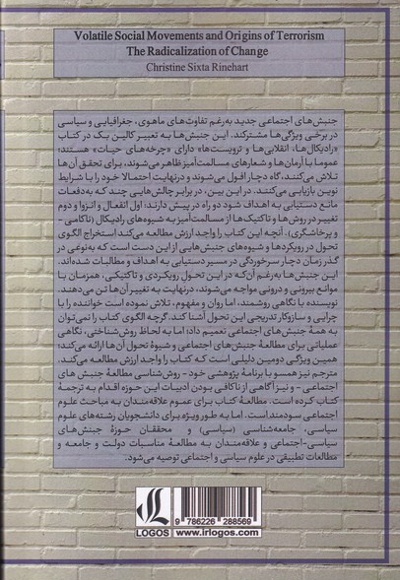 Volatile Social Movements and Origins of Terrorism
The Radicalization of Change
Christine Sixta Rinehart
جنبش‌های اجتماعی جدید به‌رغم تفاوت‌های ماهوی، جغرافیایی و سیاسی
در برخی ویژگی‌ها مشترکند. این جنبش‌ها به تعبیر کالین بک در کتاب
«رادیکال‌ها: انقلابی‌ها و تروریست‌ها» دارای «چرخه‌های حیات» هستند؛
عموما با آرمان‌ها و شعارهای مسالمت‌آمیز ظاهر می‌شوند، برای تحقق آن‌ها
تلاش می‌کنند، گاه دچار افول می‌شوند و درنهایت احتمالا خود را با شرایط
نوین بازیابی می‌کنند. در این بین، در برابر چالش‌هایی چند که به‌دفعات
مانع دستیابی به اهداف شود دو راه در پیش دارند: اول انفعال و انزوا و دوم
تغییر در روش‌ها و تاکتیک‌ها از مسالمت‌آمیز به شیوه‌های رادیکال (ناکامی-
و پرخاشگری). آنچه این کتاب را واجد ارزش مطالعه می‌کند استخراج الگوی
تحول در رویکردها و شیوه‌های جنبش‌هایی از این دست است که به‌نوعی در
گذر زمان دچار سرخوردگی در مسیر دستیابی به اهداف و مطالبات شده‌اند.
این جنبش‌ها به‌رغم آن‌که در این تحول رویکردی و تاکتیکی، همزمان با
موانع بیرونی و درونی مواجه می‌شوند، درنهایت به تغییر آن‌ها تن می‌دهند.
نویسنده با نگاهی روشمند، اما روان و مفهوم، تلاش نموده است خواننده را با
چرایی و سازوکار تدریجی این تحول آشنا کند. گرچه الگوی کتاب را نمی‌توان
به همهٔ جنبش‌های اجتماعی تعمیم داد؛ اما به لحاظ روش‌شناختی، نگاهی
عملیاتی برای مطالعهٔ جنبش‌های اجتماعی و شیوهٔ تحول آن‌ها ارائه می‌کند؛
همین ویژگی دومین دلیلی است که کتاب را واجد ارزش مطالعه می‌کند.
مترجم نیز همسو با برنامهٔ پژوهشی خود- روش‌شناسی مطالعهٔ جنبش های
اجتماعی- و نیز آگاهی از ناکافی بودن ادبیات این حوزه اقدام به ترجمهٔ
کتاب کرده است. مطالعهٔ کتاب برای عموم علاقه‌مندان به مباحث علوم
اجتماعی سودمند است. اما به طور ویژه برای دانشجویان رشته‌های علوم
سیاسی، جامعه‌شناسی (سیاسی) و محققان حوزهٔ جنبش‌های
سیاسی-اجتماعی و علاقه‌مندان به مطالعهٔ مناسبات دولت و جامعه و
مطالعات تطبیقی در علوم سیاسی و اجتماعی توصیه می‌شود.
LOGOS
9 786226 288569
www.irlogos.com